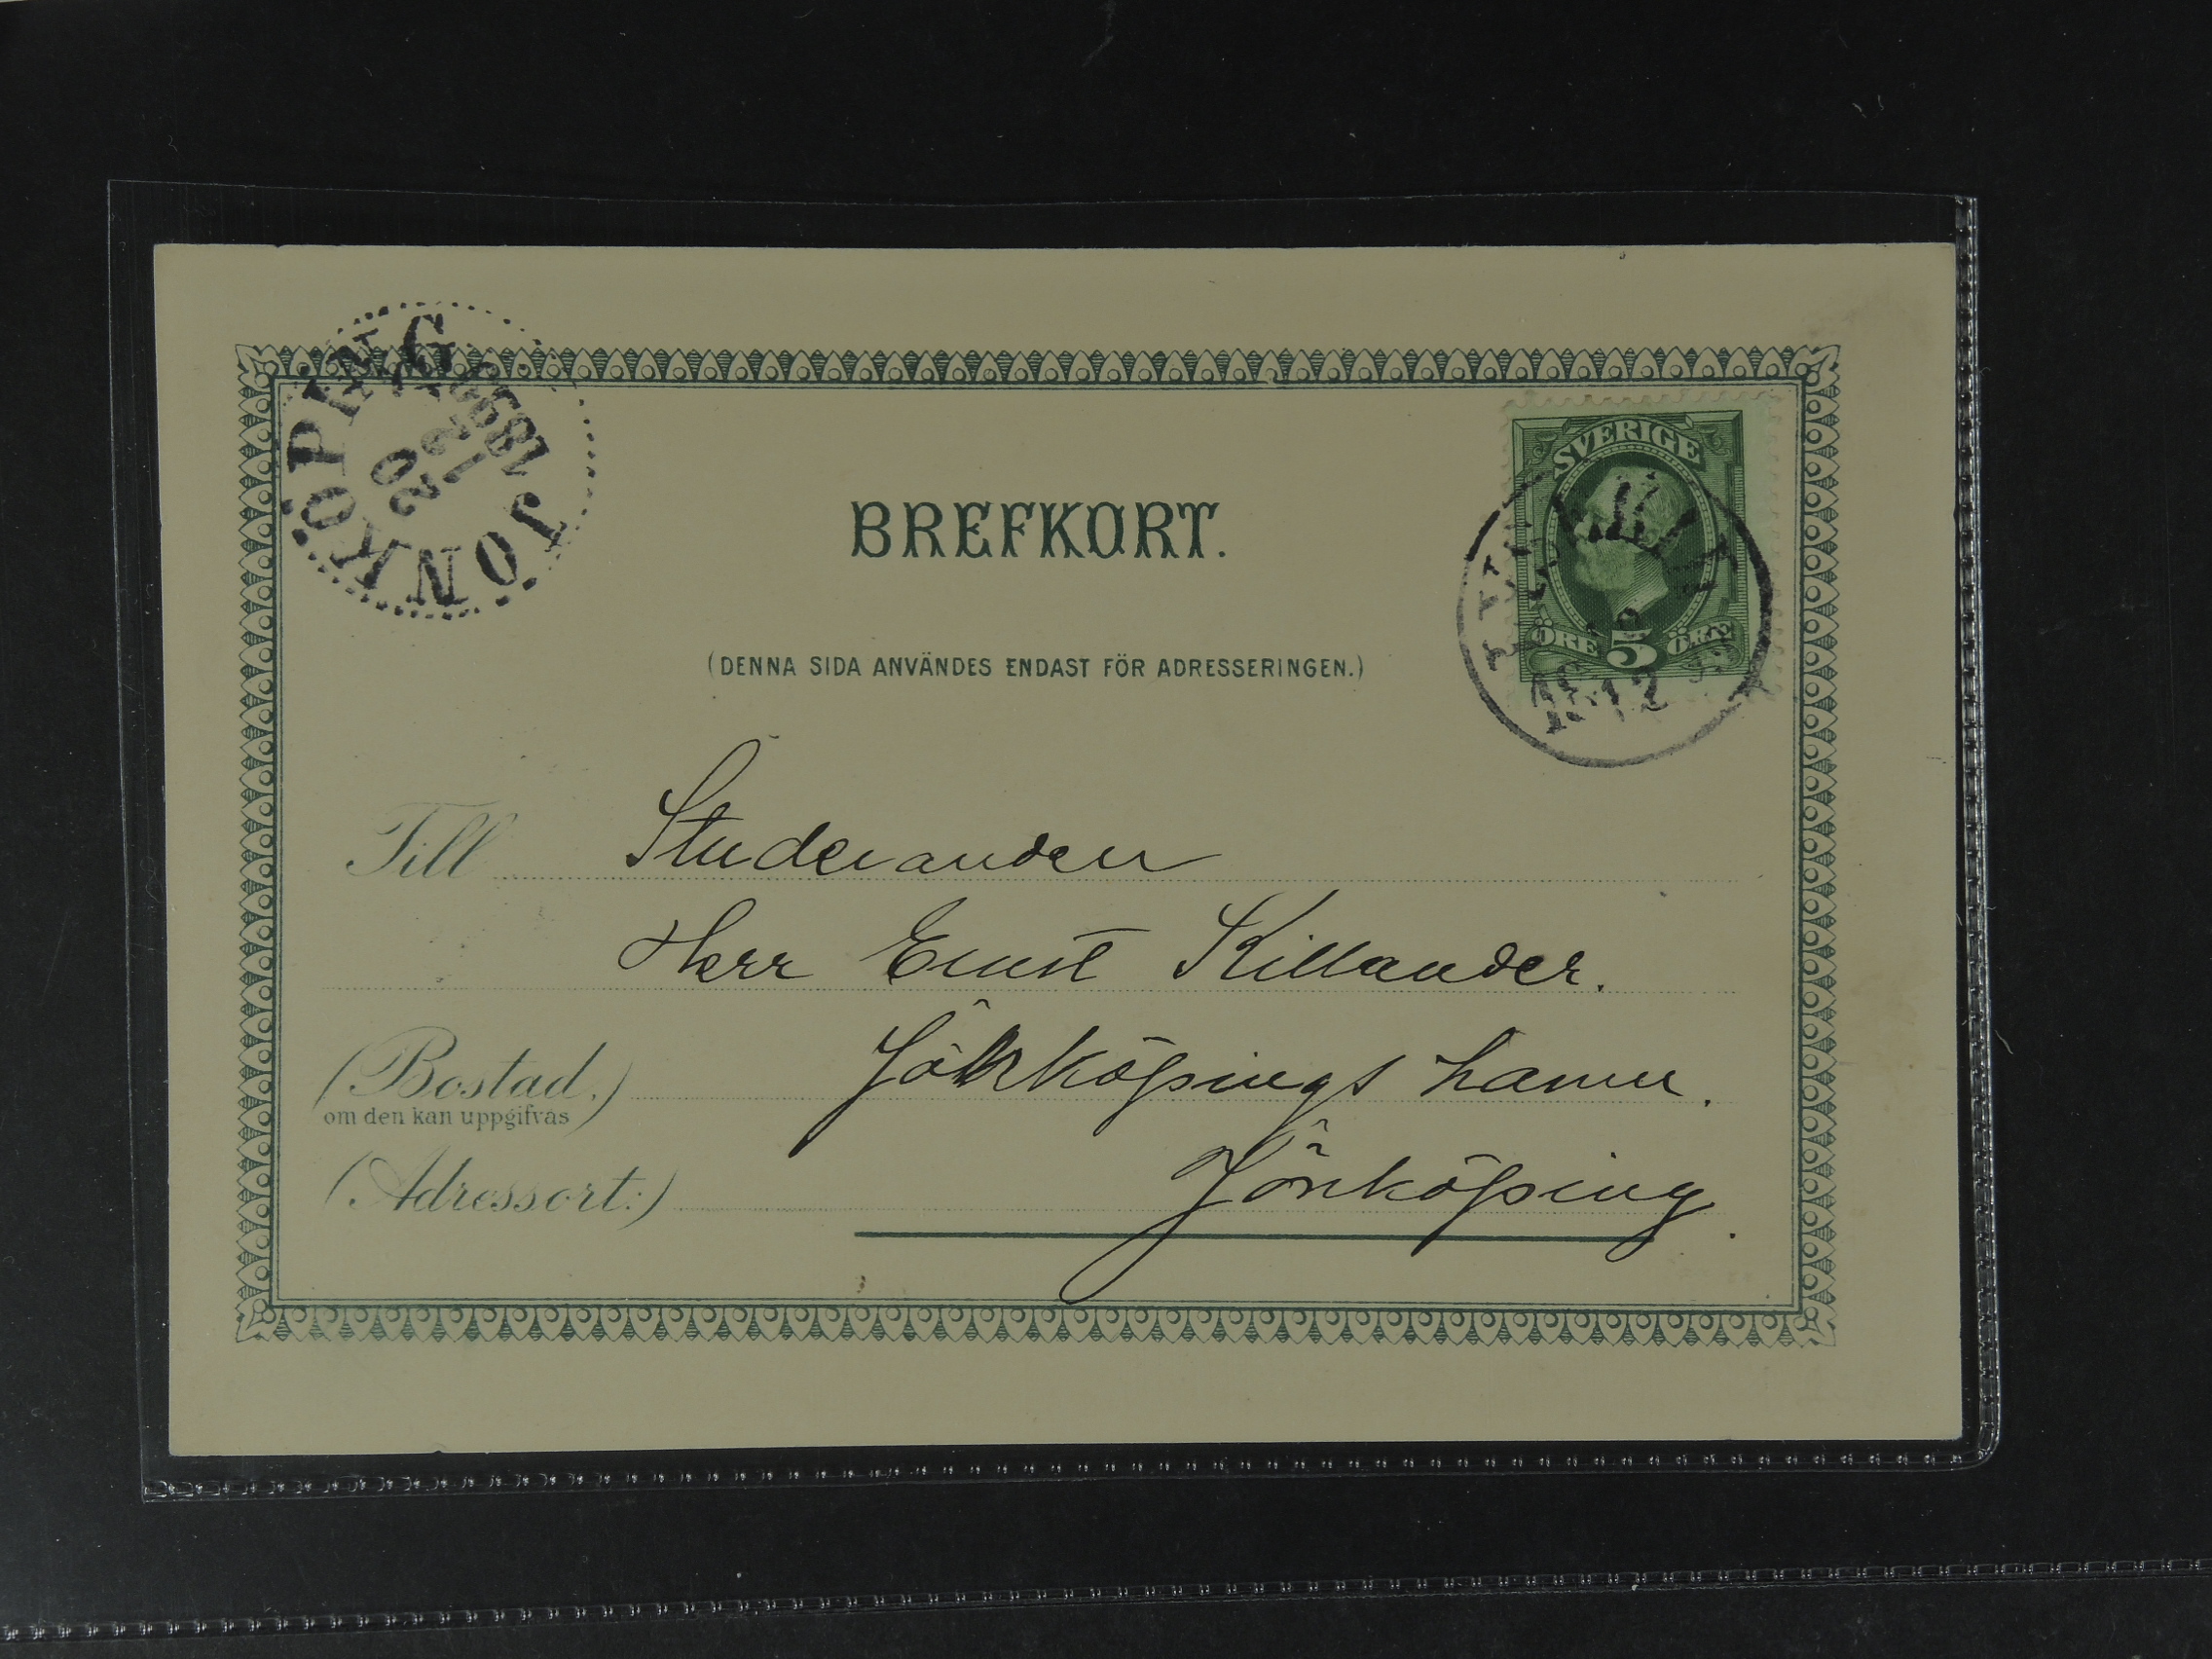 JÖNKÖPING
20
12
SVERIGE
ÖRE 5 ÖRE
BREFKORT.
(DENNA SIDA ANVÄNDES ENDAST FÖR ADRESSERINGEN.)
Till Studeranden
Herr Ernst Killander.
(Bostad.) Jönköpings hamn.
om den kan uppgifvas
(Adressort:) Jönköping.